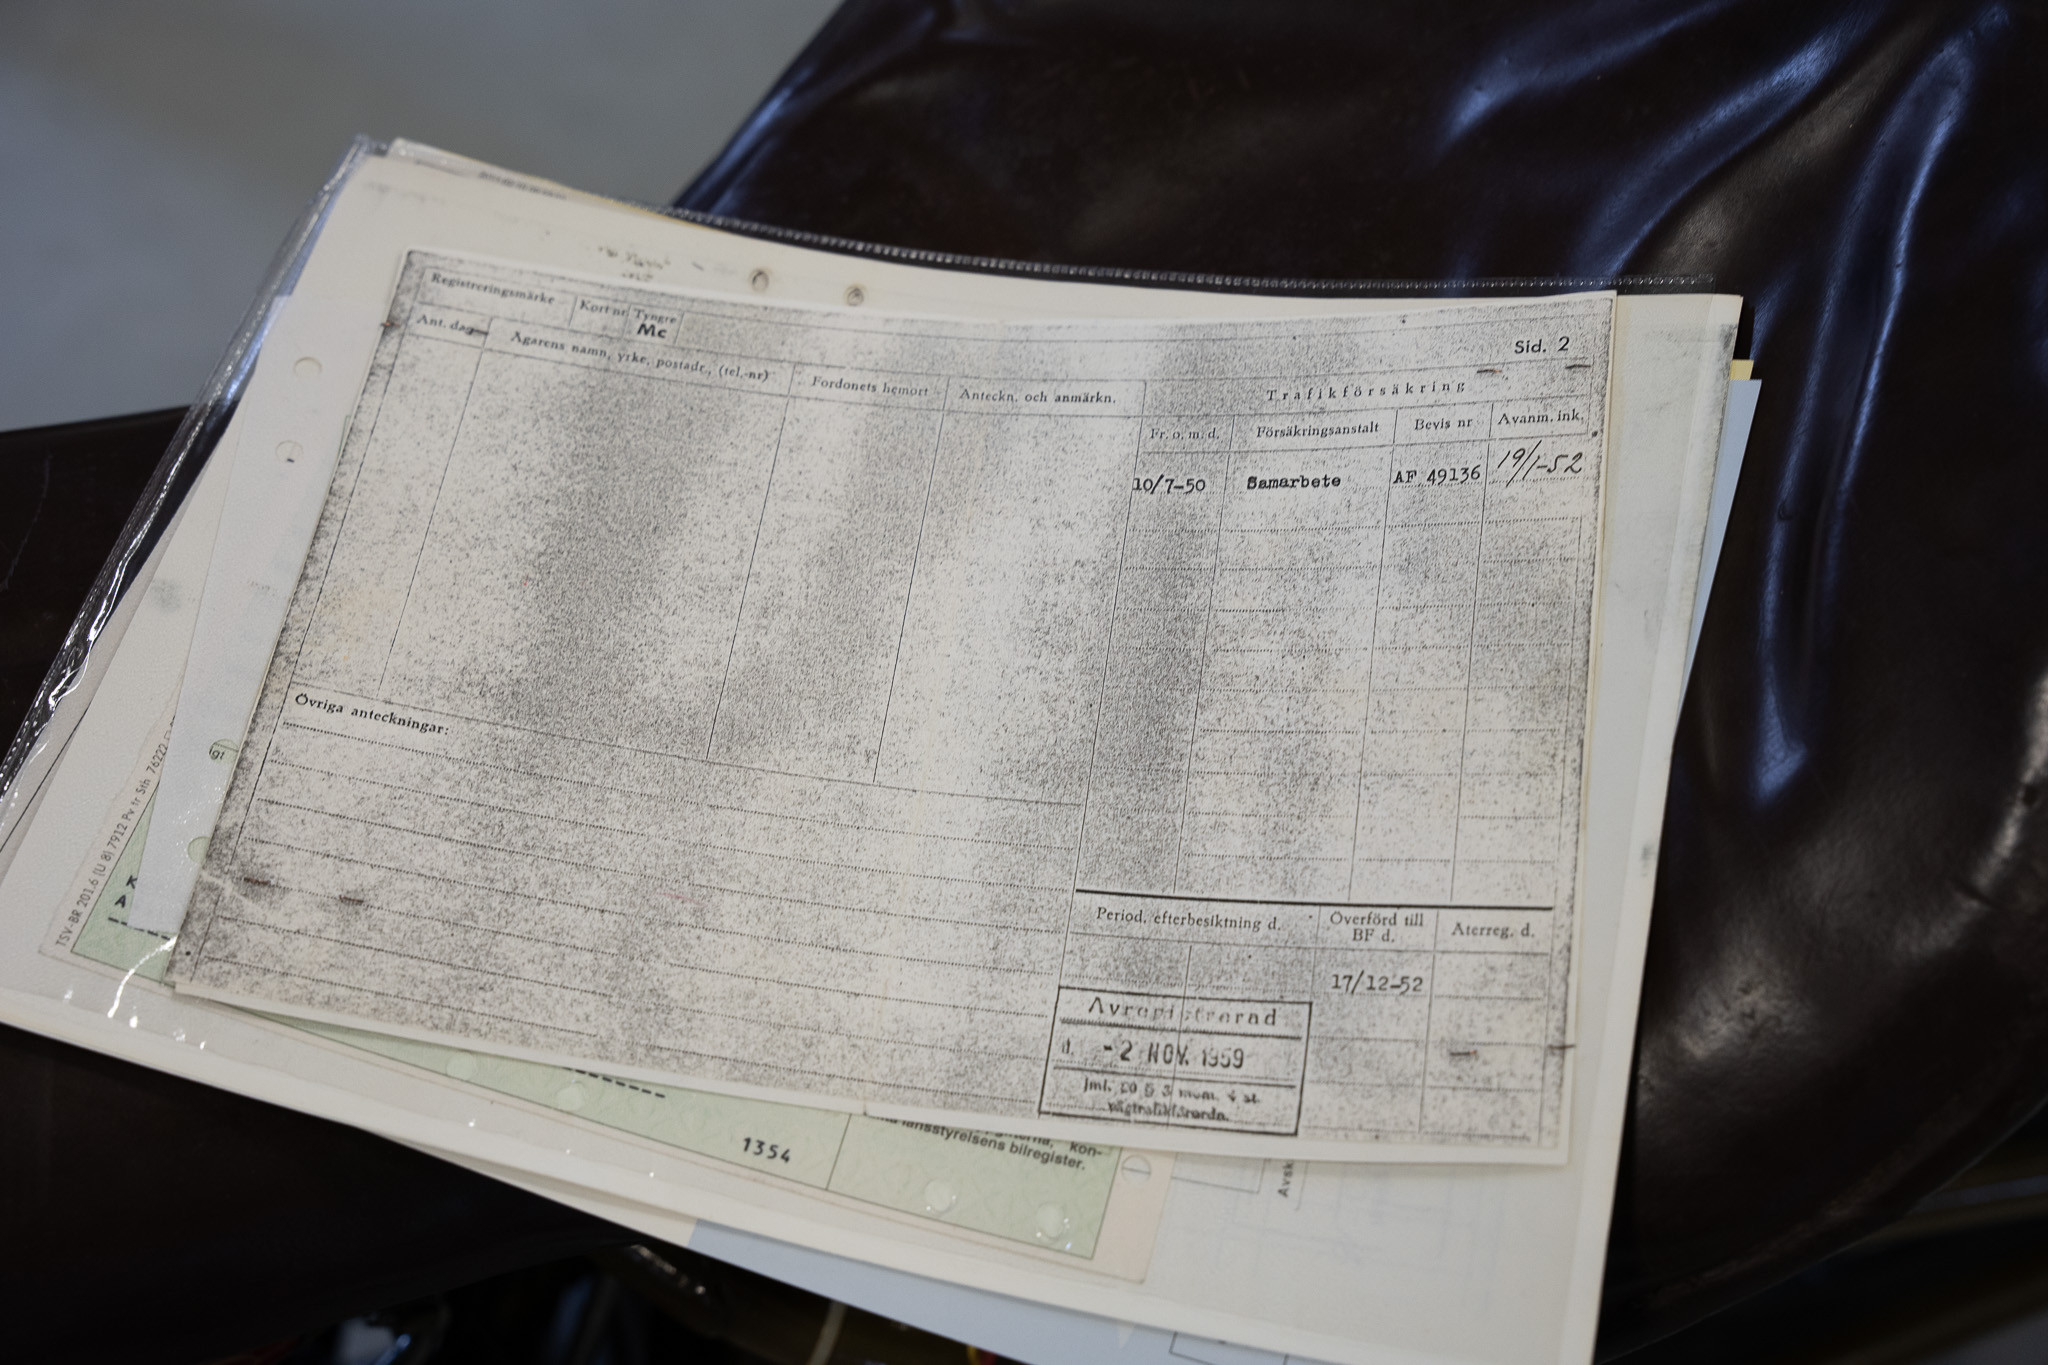 Registreringsmärke Kort nr Tyngre
Mc
Sid. 2
Ant. dag
Ägarens namn, yrke, postadr., (tel.-nr)
Fordonets hemort
Anteckn. och anmärkn.
Trafikförsäkring
Fr. o. m. d. Försäkringsanstalt Bevis nr Avanm. ink.
10/7-50 Samarbete AF 49136 19/1-52
Övriga anteckningar:
Period. efterbesiktning d. Överförd till Återreg. d.
BF d.
17/12-52
Avregistrerad
d. -2 NOV. 1959
jml. på § 3 mom. 4 st.
vägtrafikförordn.
TSV-BR 201.6 (U 8) 7912 Pv tr Sth 76222
igt
K
A
1354
kon-
länsstyrelsens bilregister.
Avsk